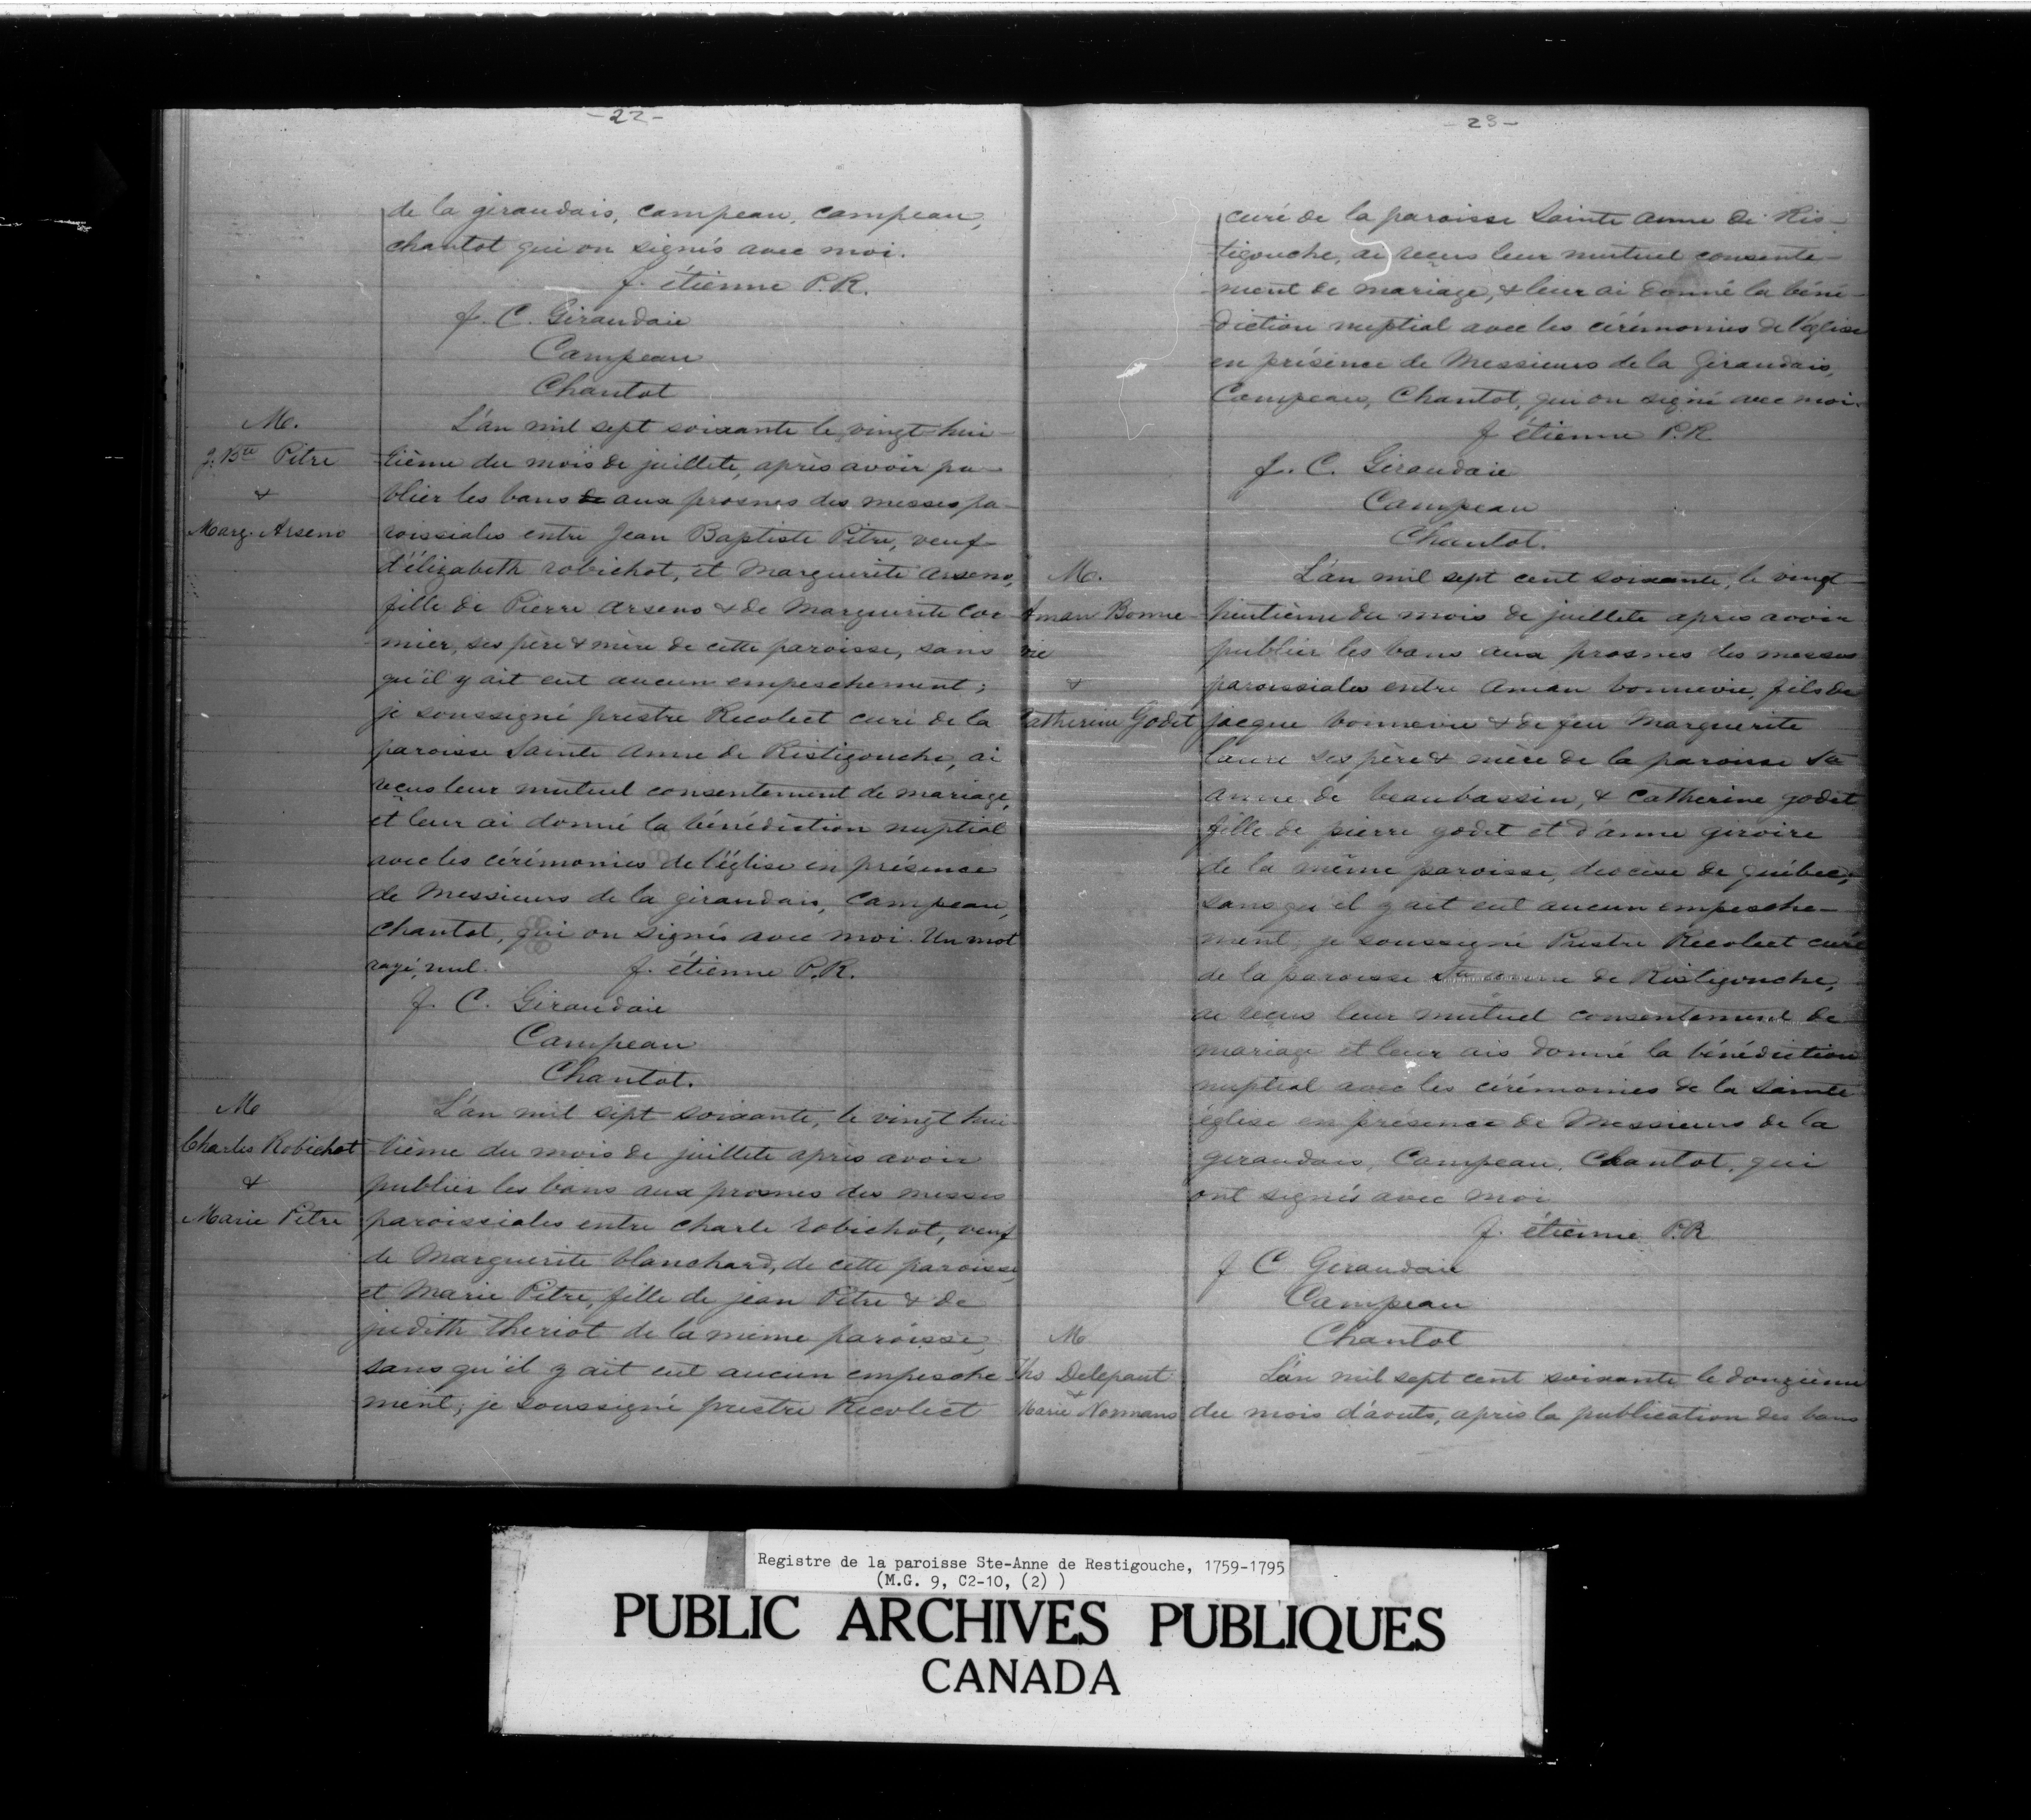 - 22 -
de la giraudais, campeau, campeau,
chantot qui on signés avec moi.
f. étienne P.R.
J. C. Giraudaie
Campeau
Chantot
M.
J. Bte Pitre
&
Marg. Arseno
L'an mil sept soixante le vingt hui-
tième du mois de juillete, après avoir pu-
blier les bans de aux prosnes des messes pa-
roissiales entre Jean Baptiste Pitre, veuf
d'élizabeth robichot, et Marguerite arseno,
fille de Pierre arseno & de Marguerite Cor-
mier, ses père & mère de cette paroisse, sans
qu'il y ait eut aucun empeschement;
je soussigné prestre Recolect curé de la
paroisse Sainte Anne de Ristigouche, ai
reçus leur mutuel consentement de mariage,
et leur ai donné la bénédiction nuptial
avec les cérémonies de l'église en présence
de Messieurs de la giraudais, Campeau,
chantot, qui on signés avec moi. Un mot
rayé, nul. f. étienne P.R.
J. C. Giraudaie
Campeau
Chantot.
M
Charles Robichot
&
Marie Pitre
L'an mil sept soixante, le vingt hui-
tième du mois de juillete après avoir
publier les bans aux prosnes des messes
paroissiales entre charle robichot, veuf
de Marguerite blanchard, de cette paroisse,
et Marie Pitre, fille de jean Pitre & de
judith theriot de la même paroisse,
sans qu'il y ait eut aucun empesche
ment, je soussigné prestre Recolect
- 23 -
curé de la paroisse Sainte Anne de Ris-
tigouche, ai recus leur mutuel consente-
ment de mariage, & leur ai donné la béné-
diction nuptial avec les cérémonies de l'église
en présence de Messieurs de la Giraudais,
Campeau, Chantot, qui on signé avec moi.
f étienne P.R
J. C. Giraudaie
Campeau
Chantot.
M.
Aman Bonne-
vie
&
Catherine Godet
L'an mil sept cent soixante, le vingt-
huitième du mois de juillete apres avoir
publier les bans aux prosnes des messes
paroissiales entre Aman bonnevie, fils de
jacque bonnevie & de feu Marguerite
laure ses père & mère de la paroisse Ste
anne de beaubassin, & Catherine godet
fille de pierre godet et d'anne giroire
de la même paroisse, diocèse de québec,
sans qu'il y ait eut aucun empesche-
ment, je soussigné Prestre Recolect curé
de la paroisse Ste anne de Ristigouche,
ai reçus leur mutuel consentement de
mariage et leur ais donné la bénédiction
nuptial avec les cérémonies de la Sainte
église en présence de Messieurs de la
giraudais, Campeau, Chantot, qui
ont signés avec moi
f. étienne P.R
J C Geraudaie
Campeau
Chantot
M
Ths Delepaut
&
Marie Normans
L'an mil sept cent soixante le douzième
du mois d'aouts, après la publication des bans
Registre de la paroisse Ste-Anne de Restigouche, 1759-1795
(M.G. 9, C2-10, (2) )
PUBLIC ARCHIVES PUBLIQUES
CANADA